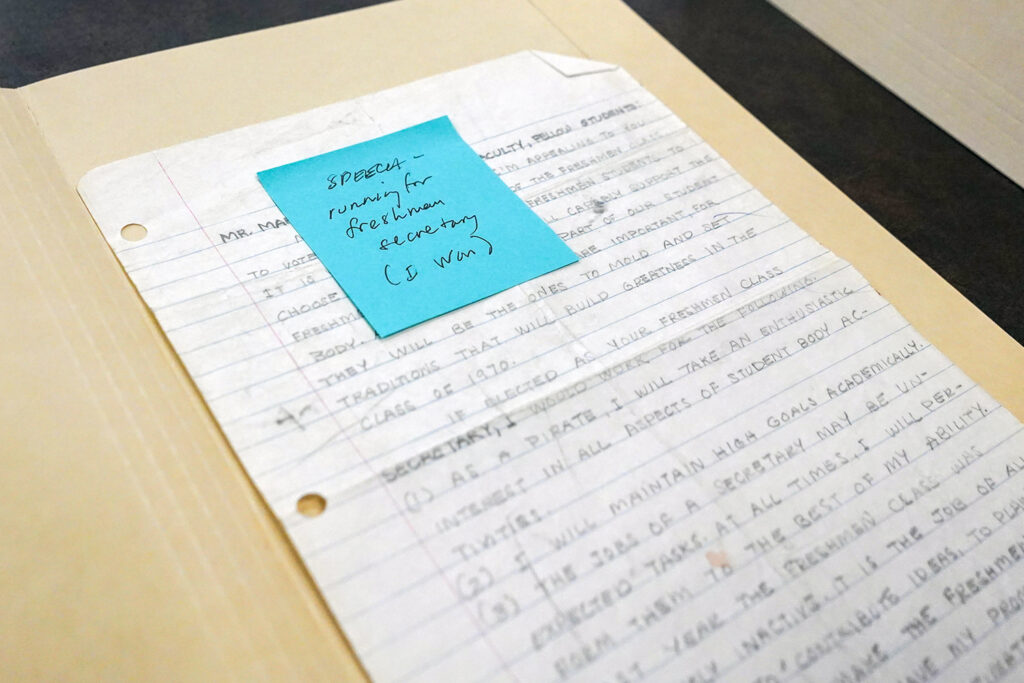 SPEECH -
running for
freshman
secretary
(I won)
MR. MA
ACULTY, FELLOW STUDENTS:
I'M APPEALING TO YOU
TO VOTE
OF THE FRESHMEN CLASS
IT IS
FRESHMEN STUDENTS TO
CHOOSE
ALL CAN SUPPORT THE
FRESHM
PART OF OUR STUDENT
BODY.
ARE IMPORTANT, FOR
THEY WILL BE THE ONES TO MOLD AND SET
TRADITIONS THAT WILL BUILD GREATNESS IN THE
CLASS OF 1970.
IF ELECTED AS YOUR FRESHMEN CLASS
SECRETARY, I WOULD WORK FOR THE FOLLOWING:
(1) AS A PIRATE, I WILL TAKE AN ENTHUSIASTIC
INTEREST IN ALL ASPECTS OF STUDENT BODY AC-
TIVITIES.
(2) I WILL MAINTAIN HIGH GOALS ACADEMICALLY.
(3) THE JOBS OF A SECRETARY MAY BE UN-
EXPECTED TASKS. AT ALL TIMES, I WILL PER-
FORM THEM TO THE BEST OF MY ABILITY.
ST YEAR THE FRESHMEN CLASS WAS
ELY INACTIVE. IT IS THE JOB OF ALL
TO CONTRIBUTE IDEAS, TO PLAN
MAKE THE FRESHMEN
HAVE MY PROM